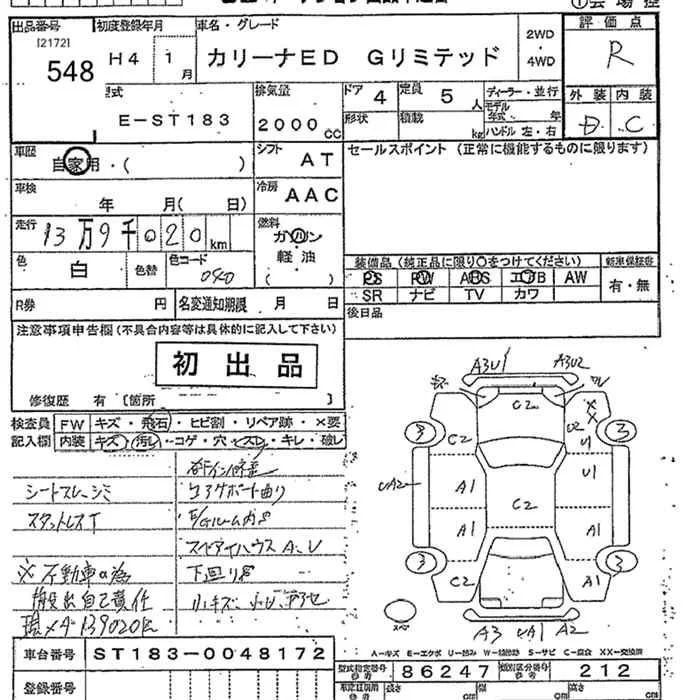 出品番号 初度登録年月 車名・グレード 2WD ・ 4WD 評価点
[2172] 548 H4 1月 カリーナED Gリミテッド R
型式 排気量 ドア 4 定員 5人 ディーラー・並行 外装 内装
E-ST183 2000cc 形状 積載 kg モデル年式 年 D C
ハンドル 左・右
車歴 自家用・( ) シフト AT セールスポイント (正常に機能するものに限ります)
車検 年 月( 日) 冷房 AAC
走行 13万9千020km 燃料 ガソリン・軽油 ( )
色 白 色替 色コード 040 装備品 (純正品に限り○をつけてください) 新車保証書
PS PW ABS エアB AW 有・無
R券 円 名変通知期限 月 日 SR ナビ TV カワ
注意事項申告欄 (不具合内容等は具体的に記入して下さい) 後日品
初出品
修復歴 有 [箇所 ]
検査員記入欄 FW キズ・飛石・ヒビ割・リペア跡・×要
内装 キズ・汚レ・コゲ・穴・スレ・キレ・破レ
シートスレ・シミ コアサポート曲り
スタットレスT E/Gルーム内S
スペアタイハウスA、U
※不動車の為 下回りS
搬出自己責任 小キズ、
現メータ139020K
A3U1 A3U2
C2
3 C2 U2 U1 3
UA2 A1 C2 U1
A1 A1
3 C2 A1 3
A3 UA1 A2
A-キズ E-エクボ U-凹み W-補修跡 S-サビ C-腐食 XX-交換済
車台番号 ST183-0048172 型式指定番号 参考 86247 類別区分番号 参考 212
登録番号 長さ cm 幅 cm 高さ cm